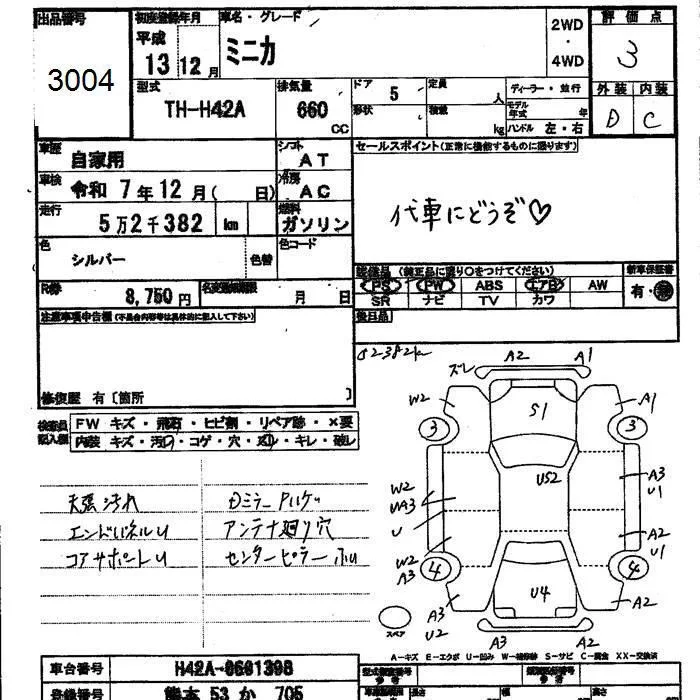 出品番号
3004
初度登録年月
平成
13 12 月
車名・グレード
ミニカ
2WD
・
4WD
評価点
3
型式
TH-H42A
排気量
660
CC
ドア
5
形状
定員
人
積載
kg
ディーラー・並行
モデル年式 年
ハンドル 左・右
外装 内装
D C
車歴
自家用
シフト
AT
車検
令和 7年12月( 日)
冷房
AC
走行
5万2千382 km
燃料
ガソリン
色
シルバー
色替
色コード
R券
8,750円
名変期限 月 日
セールスポイント(正常に機能するものに限ります)
代車にどうぞ♡
装備品 (純正品に限り○をつけてください)
PS PW ABS エアB AW
SR ナビ TV カワ
新車保証書
有・無
後日品
注意事項申告欄(不具合内容等は具体的に記入して下さい)
修復歴 有〔箇所 〕
検査員記入欄
FW キズ・飛石・ヒビ割・リペア跡・×要
内装 キズ・汚れ・コゲ・穴・ズレ・キレ・破レ
天張汚れ
エンドパネルU
コアサポートU
Dミラー
アンテナ廻り穴
センターピラー
52382km
ズレ
A2
A1
W2
S1
A1
3
3
U52
W2
UA3
U
A3
U1
W2
A3
A2
U1
4
4
U4
A3
U2
A2
スペア
A3
A2
A-キズ E-エクボ U-凹み W-補修跡 S-サビ C-腐食 XX-交換済
車台番号
H42A-0601398
登録番号
熊本 53 か 705